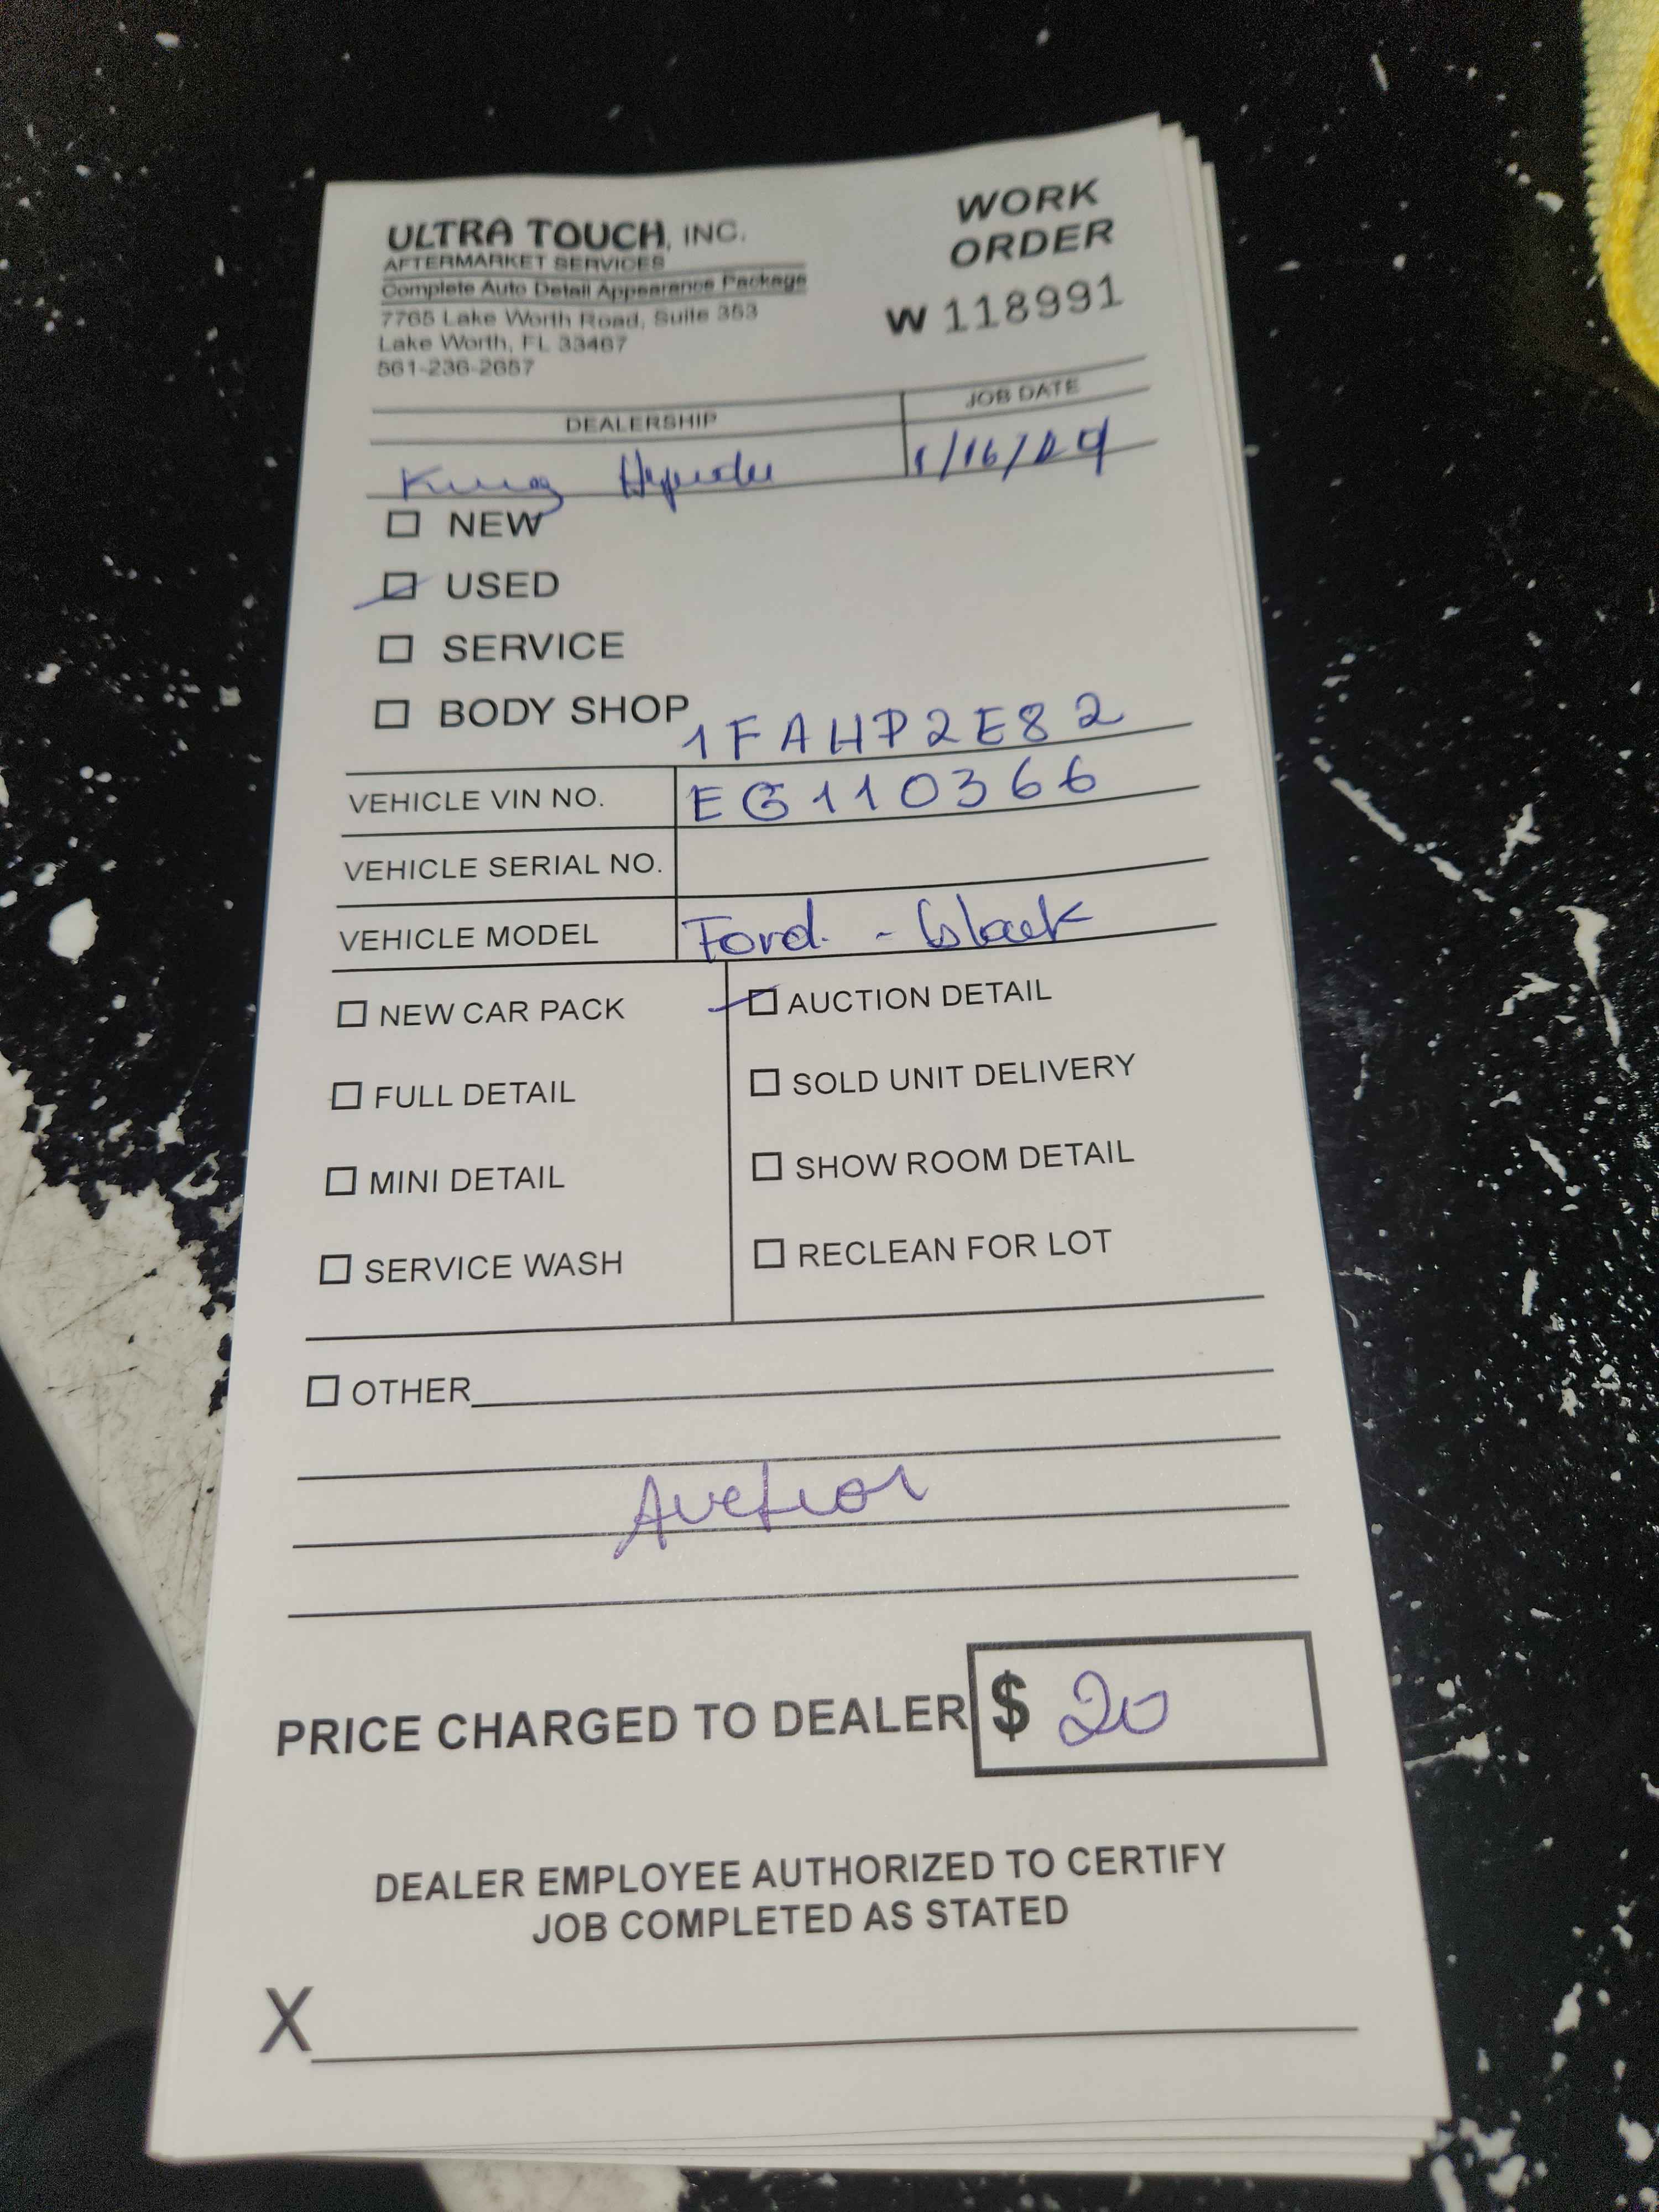 ULTRA TOUCH, INC.
AFTERMARKET SERVICES
Complete Auto Detail Appearance Package
7765 Lake Worth Road, Suite 353
Lake Worth, FL 33467
561-236-2657
WORK
ORDER
W 118991
DEALERSHIP
JOB DATE
King
1/16/24
NEW
USED
SERVICE
BODY SHOP
1FAHP2E82
VEHICLE VIN NO. EG110366
VEHICLE SERIAL NO.
VEHICLE MODEL Ford. - black
NEW CAR PACK
AUCTION DETAIL
FULL DETAIL
SOLD UNIT DELIVERY
MINI DETAIL
SHOW ROOM DETAIL
SERVICE WASH
RECLEAN FOR LOT
OTHER
Auction
PRICE CHARGED TO DEALER $ 20
DEALER EMPLOYEE AUTHORIZED TO CERTIFY
JOB COMPLETED AS STATED
X